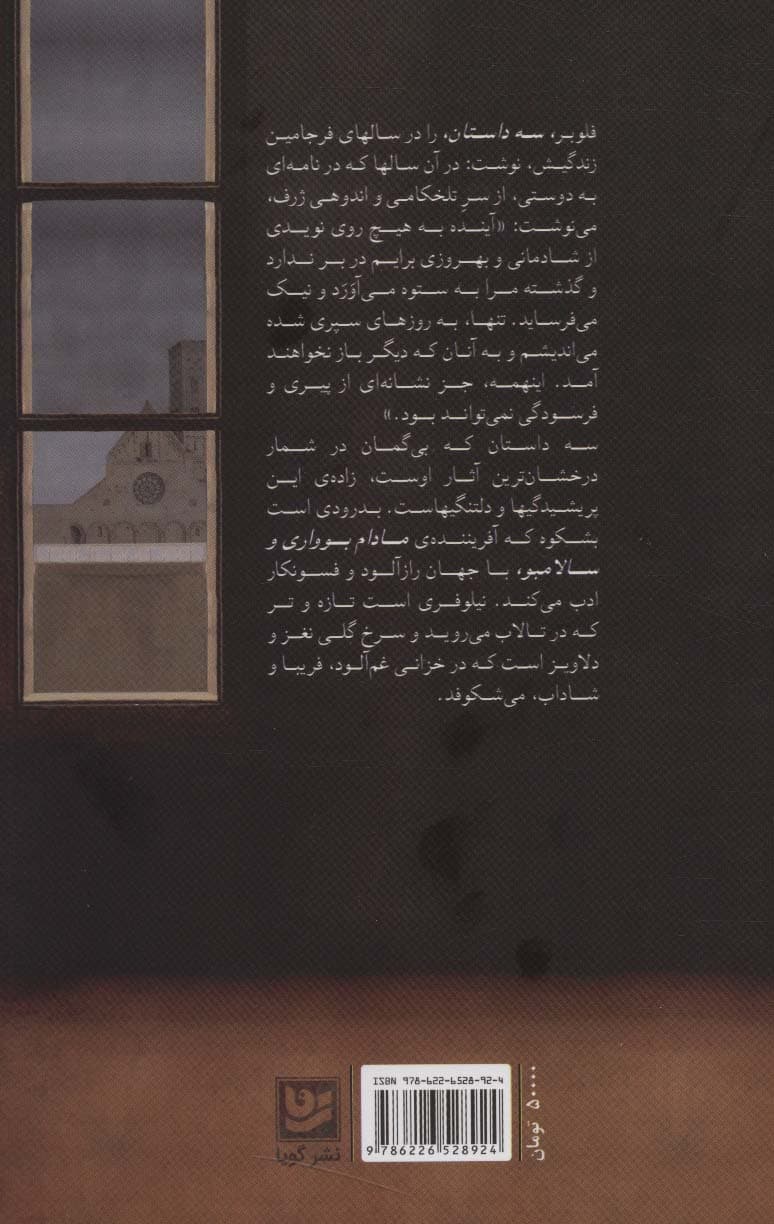 فلوبر، سه داستان، را در سالهای فرجامین
زندگیش، نوشت: در آن سالها که در نامه‌ای
به دوستی، از سرِ تلخکامی و اندوهی ژرف،
می‌نوشت: «آینده به هیچ روی نویدی
از شادمانی و بهروزی برایم در بر ندارد
و گذشته مرا به ستوه می‌آوَرَد و نیک
می‌فرساید. تنها، به روزهای سپری شده
می‌اندیشم و به آنان که دیگر باز نخواهند
آمد. اینهمه، جز نشانه‌ای از پیری و
فرسودگی نمی‌تواند بود.»
سه داستان که بی‌گمان در شمار
درخشان‌ترین آثار اوست، زاده‌ی این
پریشیدگیها و دلتنگیهاست. بدرودی است
بشکوه که آفریننده‌ی مادام بوواری و
سالامبو، با جهان رازآلود و فسونکار
ادب می‌کند. نیلوفری است تازه و تر
که در تالاب می‌روید و سرخ گلی نغز و
دلاویز است که در خزانی غم‌آلود، فریبا و
شاداب، می‌شکوفد.
نشر گویا
ISBN 978-622-6528-92-4
9 786226 528924
۵۰۰۰۰ تومان